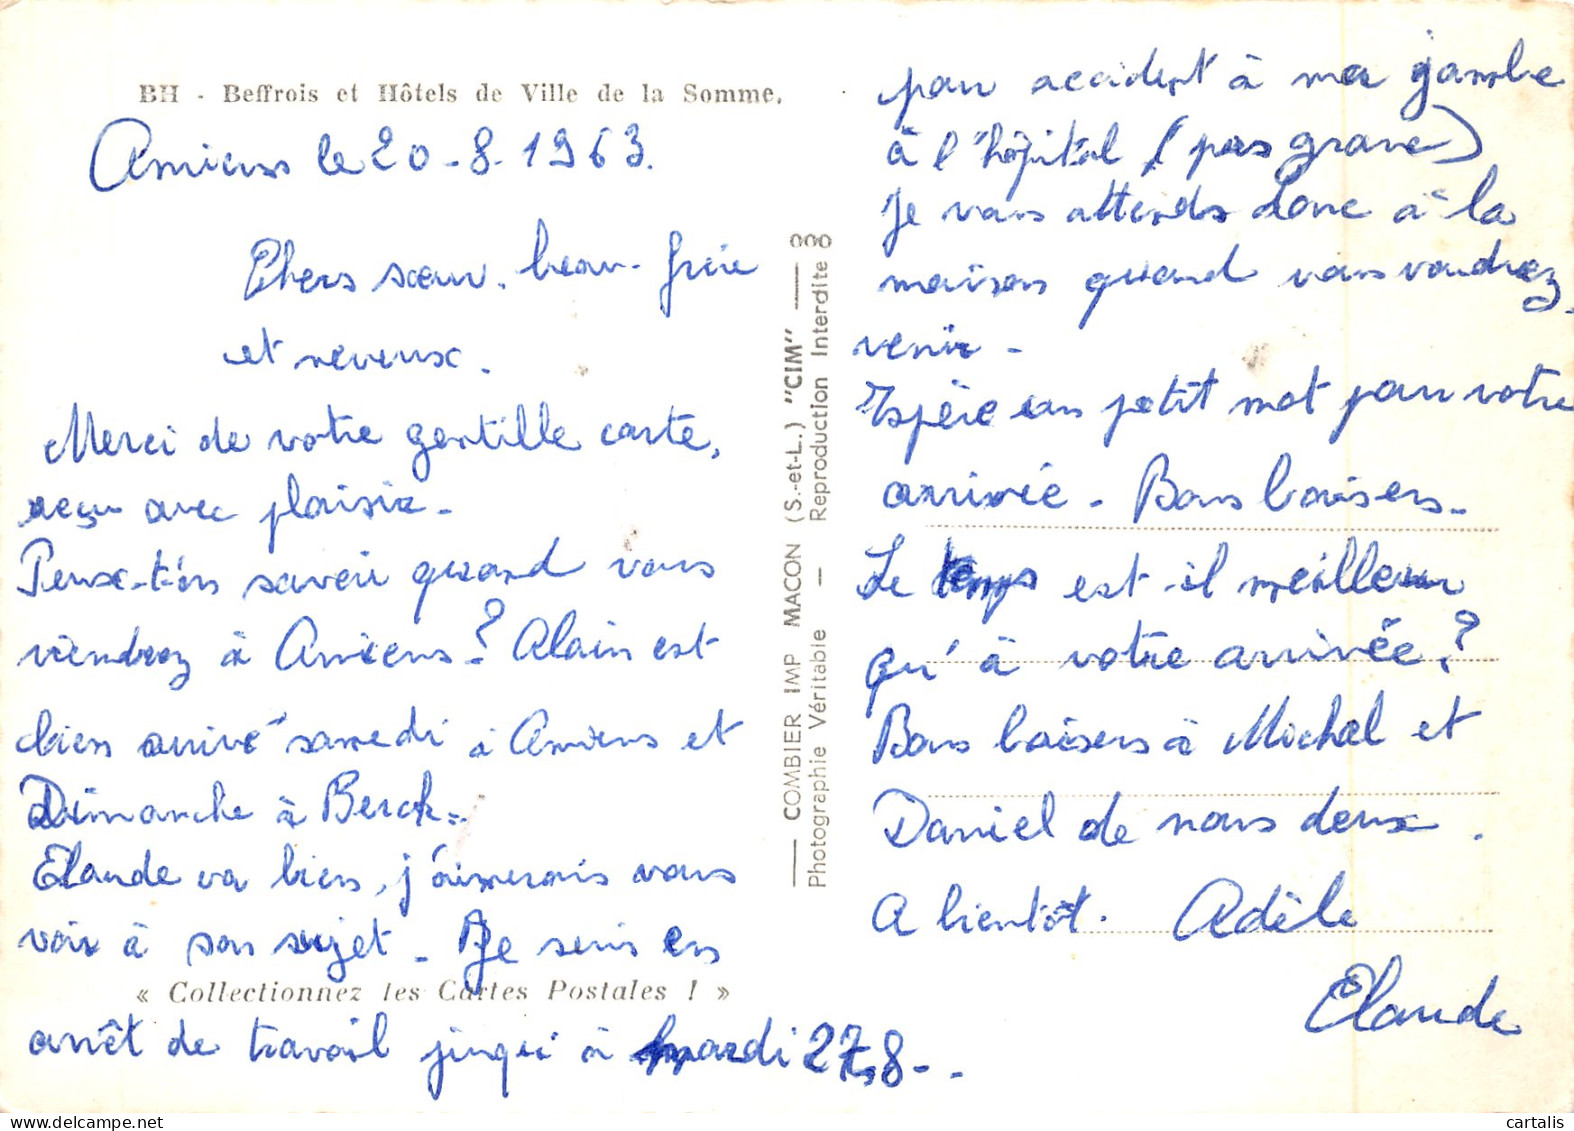 BH - Beffrois et Hôtels de Ville de la Somme.
Amiens le 20-8-1963.
Chers sœur, beau-frère
et neveux.
Merci de votre gentille carte,
reçu avec plaisir.
Peux-t'on savoir quand vous
viendrez à Amiens? Alain est
bien arrivé samedi à Amiens et
Dimanche à Berck.
Claude va bien, j'aimerais vous
voir à son sujet. Je suis en
« Collectionnez les Cartes Postales ! »
arrêt de travail jusqu'à mardi 27.8.
COMBIER IMP MACON (S.-et-L.) "CIM"
Photographie Véritable — Reproduction Interdite
par accident à ma jambe
à l'hôpital (pas grave)
Je vous attends donc à la
maison quand vous voudrez
venir -
Espère un petit mot pour votre
arrivée. Bons baisers.
Le temps est-il meilleur
qu'à votre arrivée?
Bons baisers à Michel et
Daniel de nous deux.
A bientôt. Adèle
Claude
cartalis